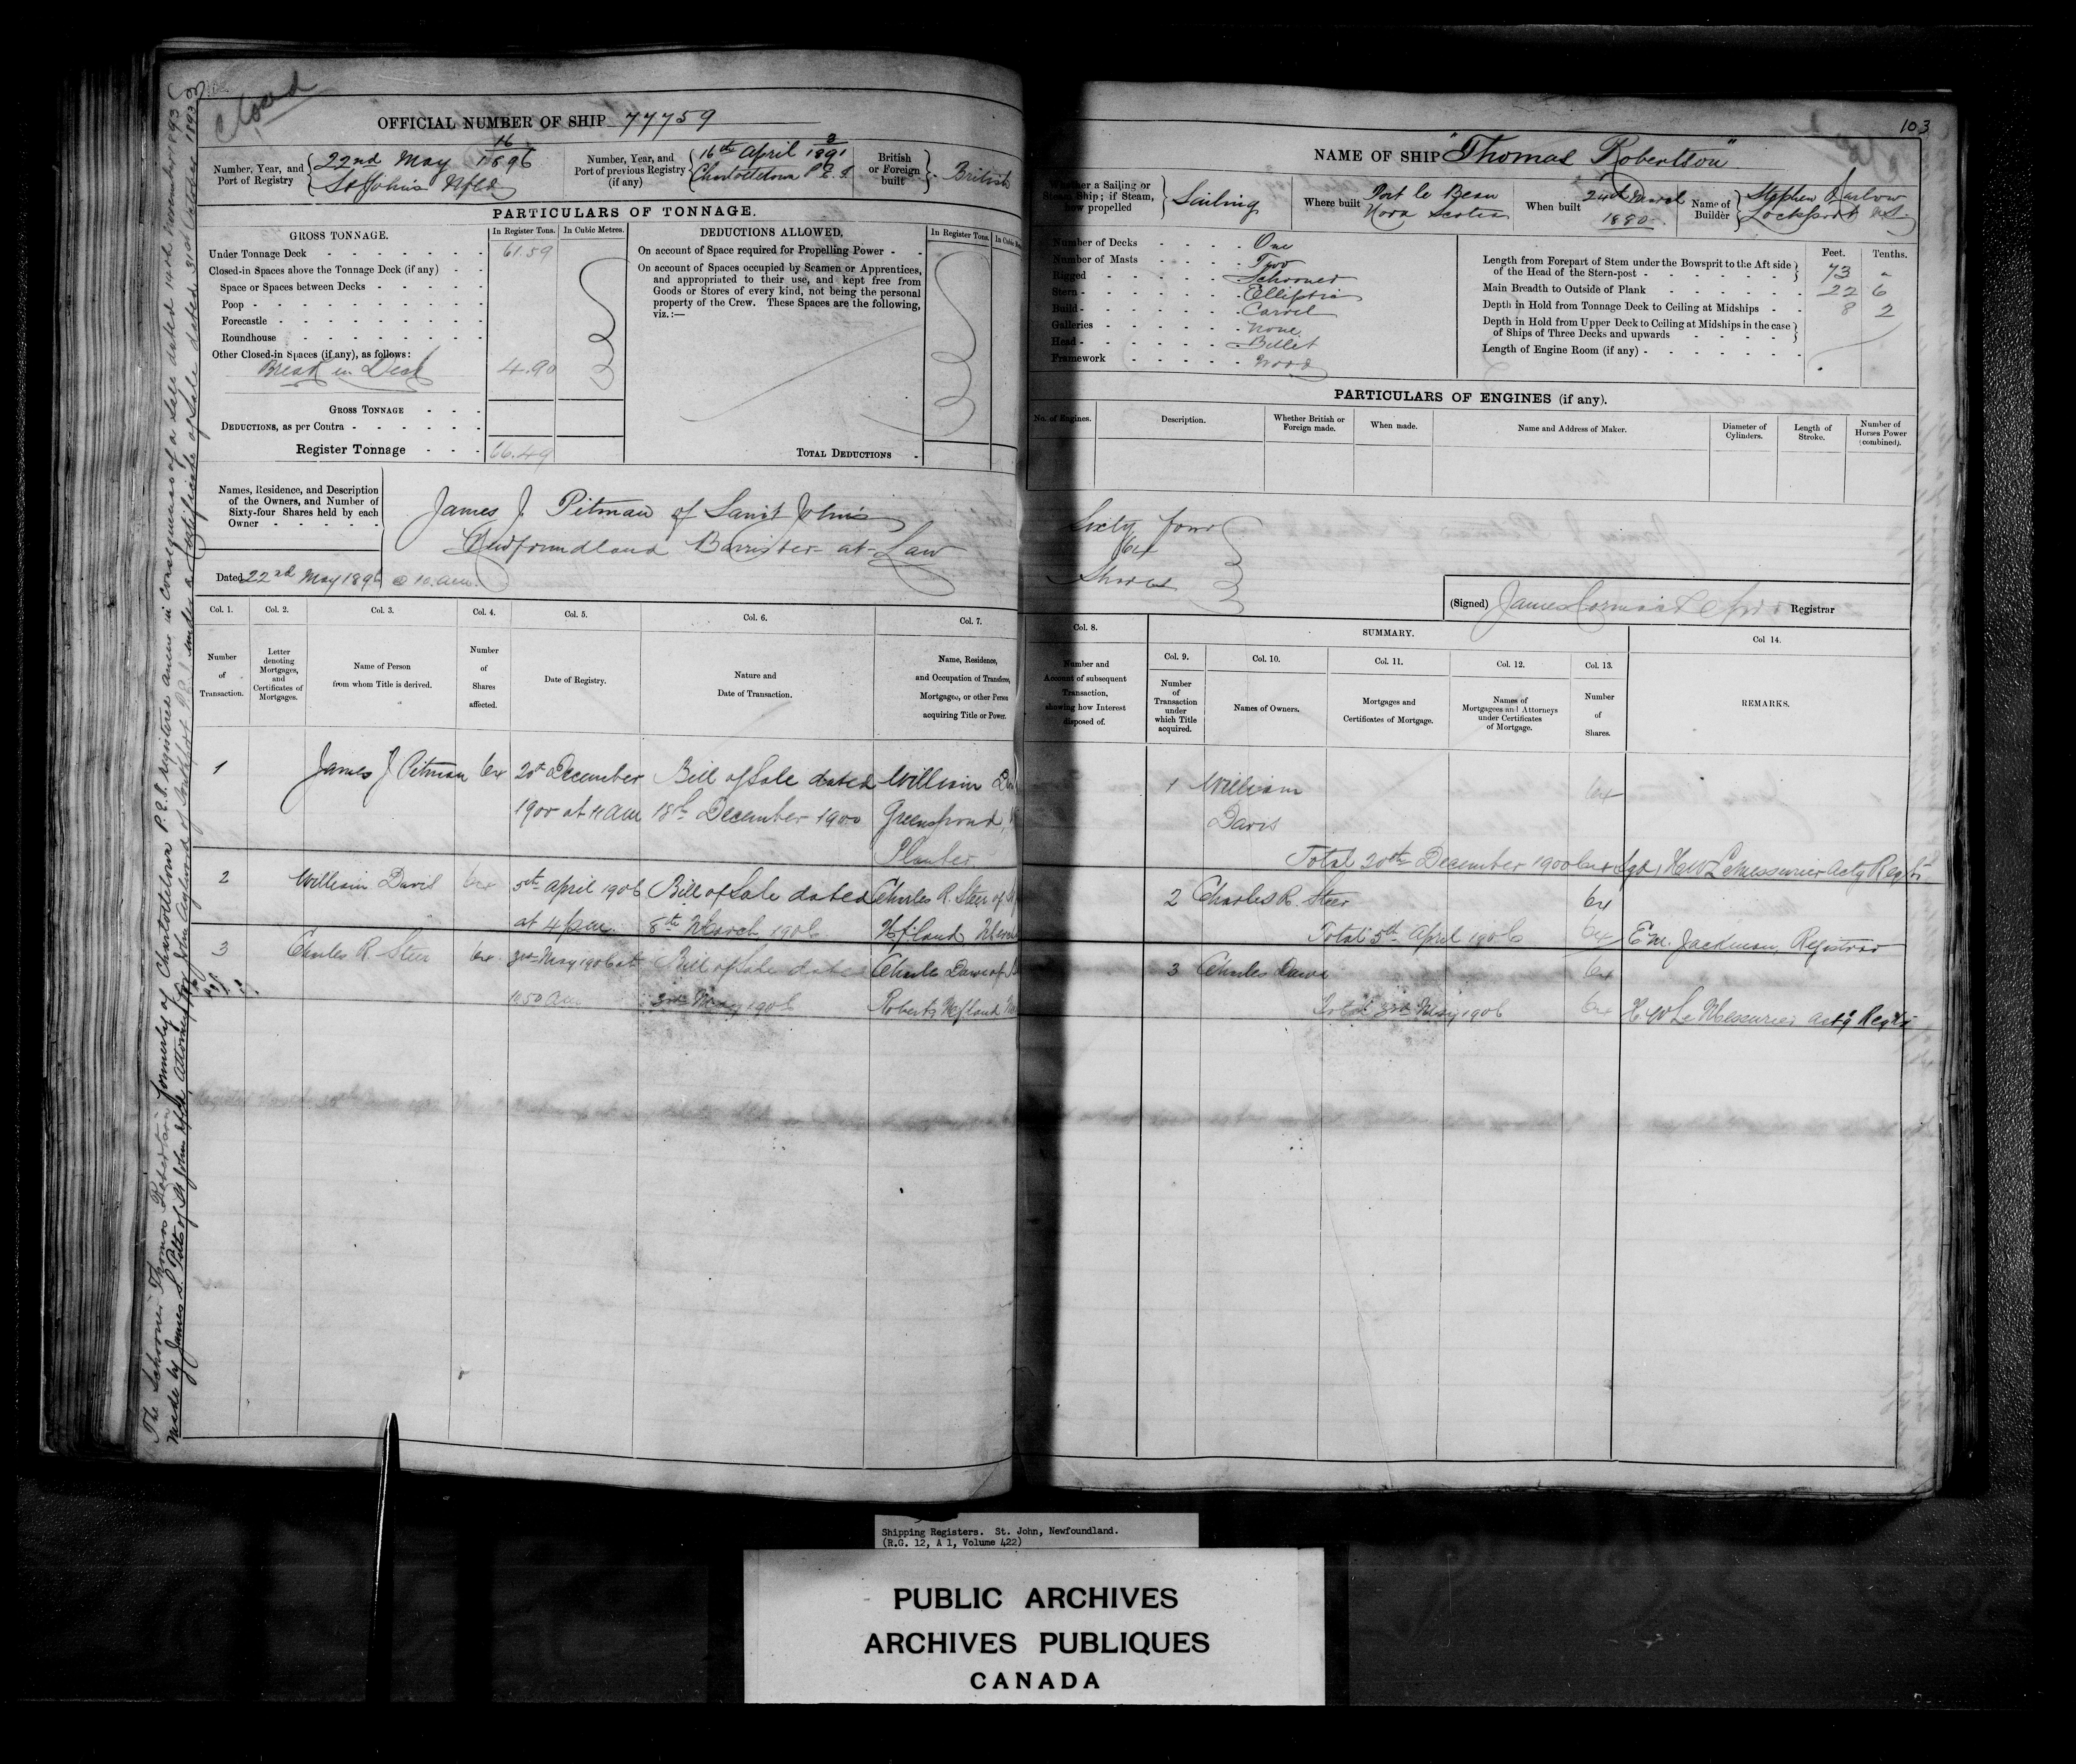 Closed
OFFICIAL NUMBER OF SHIP 77759
Number, Year, and Port of Registry 22nd May 16/1896 St Johns Nfld
Number, Year, and Port of previous Registry (if any) 16th April 3/1891 Charlottetown P.E.I.
British or Foreign built British
PARTICULARS OF TONNAGE.
GROSS TONNAGE. In Register Tons. In Cubic Metres.
Under Tonnage Deck 61.59
Closed-in Spaces above the Tonnage Deck (if any)
Space or Spaces between Decks
Poop
Forecastle
Roundhouse
Other Closed-in Spaces (if any), as follows:
Break in Deck 4.90
GROSS TONNAGE
DEDUCTIONS, as per Contra
Register Tonnage 66.49
DEDUCTIONS ALLOWED. In Register Tons.
On account of Space required for Propelling Power
On account of Spaces occupied by Seamen or Apprentices,
and appropriated to their use, and kept free from
Goods or Stores of every kind, not being the personal
property of the Crew. These Spaces are the following,
viz.:—
TOTAL DEDUCTIONS
Names, Residence, and Description
of the Owners, and Number of
Sixty-four Shares held by each
Owner
James J. Pitman of Saint John's
Newfoundland Barrister-at-Law
Dated 22nd May 1896 @ 10. a.m.
Col. 1. Col. 2. Col. 3. Col. 4. Col. 5. Col. 6. Col. 7.
Number of Transaction.
Letter denoting Mortgages, and Certificates of Mortgages.
Name of Person from whom Title is derived.
Number of Shares affected.
Date of Registry.
Nature and Date of Transaction.
Name, Residence, and Occupation of Transferee, Mortgagee, or other Person acquiring Title or Power.
1 James J Pitman 64 20th December Bill of Sale dated William
1900 at 11 am 18th December 1900 Greenspond,
Planter
2 William Davis 64 5th April 1906 Bill of Sale dated Charles R. Steer of
at 4 p.m. 8th March 1906 Nfland
3 Charles R Steer 64 3rd May 1906 at Bill of Sale dated Charles Dawe of
11.50 am 3rd May 1906 Roberts Nfland
The Schooner Thomas Robertson formerly of Charlottetown P.E.I. registered anew in consequence of a Sale dated 14th November 1893
made by James S. Pitts of St John's Nfld, Attorney for John Aylward of P.E.I. under a Certificate of Sale dated 31st October 1893
103
NAME OF SHIP "Thomas Robertson"
Whether a Sailing or Steam Ship; if Steam, how propelled Sailing
Where built Port le Bear Nova Scotia
When built 24th March 1880.
Name of Builder Stephen Lockeport N.S.
Number of Decks One
Number of Masts Two
Rigged Schooner
Stern Elliptic
Build Carvel
Galleries None
Head Billet
Framework Wood
Feet. Tenths.
Length from Forepart of Stem under the Bowsprit to the Aft side
of the Head of the Stern-post 73 -
Main Breadth to Outside of Plank 22 6
Depth in Hold from Tonnage Deck to Ceiling at Midships 8 2
Depth in Hold from Upper Deck to Ceiling at Midships in the case
of Ships of Three Decks and upwards
Length of Engine Room (if any)
PARTICULARS OF ENGINES (if any).
No. of Engines.
Description.
Whether British or Foreign made.
When made.
Name and Address of Maker.
Diameter of Cylinders.
Length of Stroke.
Number of Horses Power (combined).
Sixty four
64
Shares
(Signed) James Cormack Registrar
Col. 8. SUMMARY. Col 14.
Col. 9. Col. 10. Col. 11. Col. 12. Col. 13.
Number and Account of subsequent Transaction, showing how Interest disposed of.
Number of Transaction under which Title acquired.
Names of Owners.
Mortgages and Certificates of Mortgage.
Names of Mortgagees and Attorneys under Certificates of Mortgage.
Number of Shares.
REMARKS.
1 William 64
Davis
Total 20th December 1900 64 Sgd, H W LeMessurier Actg Regtr.
2 Charles R. Steer 64
Total 5th April 1906 64 E M. Jackman, Registrar
3 Charles Dawe 64
Total 3rd May 1906 64 H W Le Messurier Actg Regtr
Shipping Registers. St. John, Newfoundland.
(R.G. 12, A 1, Volume 422)
PUBLIC ARCHIVES
ARCHIVES PUBLIQUES
CANADA